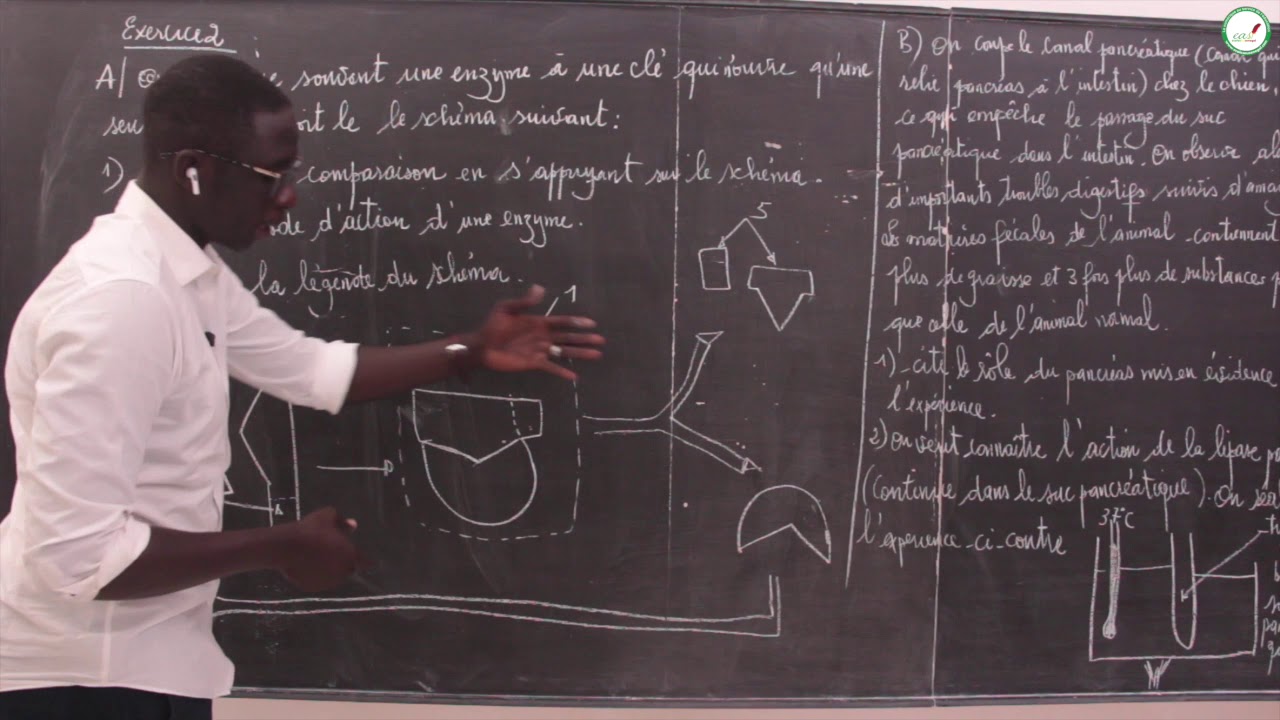 Exercice 2
A/ souvent une enzyme à une clé qui n'ouvre qu'une
seu le le schéma suivant :
1) comparaison en s'appuyant sur le schéma.
d'action d'une enzyme.
la légende du schéma.
1
5
B) On coupe le canal pancréatique (canal qui
relie pancréas à l'intestin) chez le chien,
ce qui empêche le passage du suc
pancréatique dans l'intestin. On observe
d'importants troubles digestifs suivis
Les matières fécales de l'animal contiennent
plus de graisse et 3 fois plus de substances
que celle de l'animal normal.
1) - cite le rôle du pancréas mis en évidence
l'expérience.
2) On veut connaître l'action de la lipase
(contenue dans le suc pancréatique). On
l'expérience ci-contre
37°C
eas!